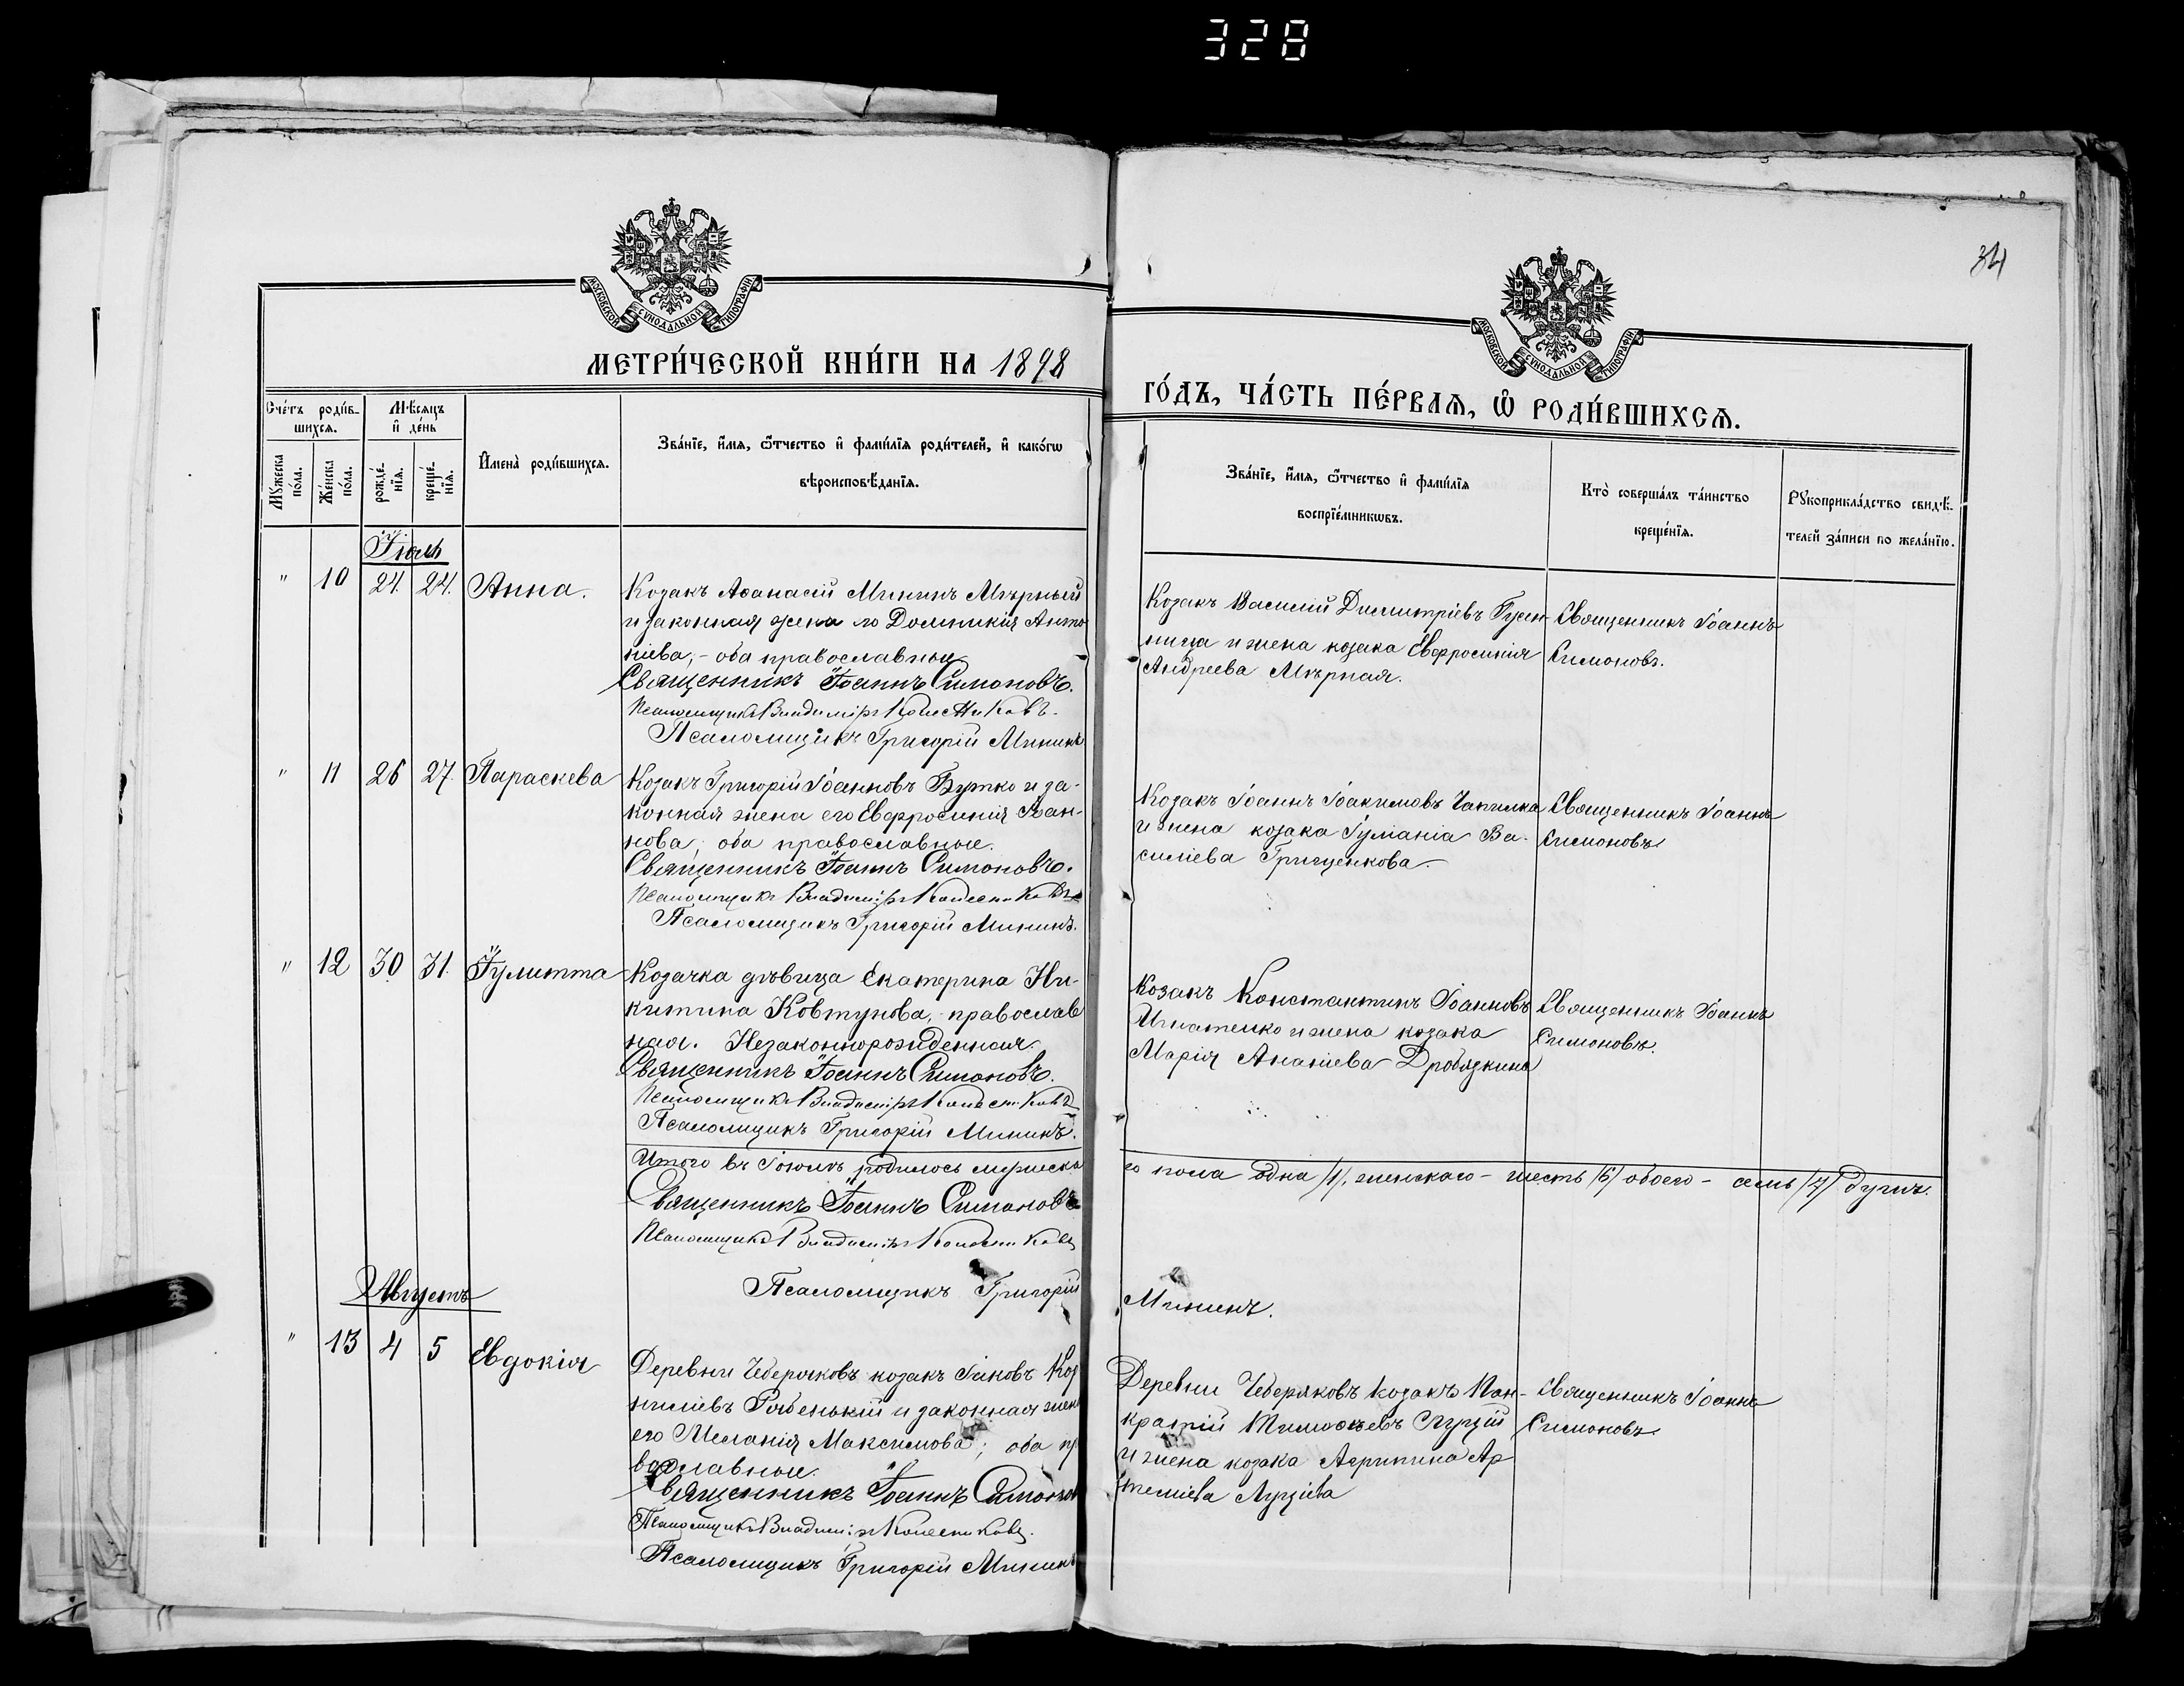 328
34
МОСКОВСКОЙ СѴНОДАЛЬНОЙ ТИПОГРАФІИ
МОСКОВСКОЙ СѴНОДАЛЬНОЙ ТИПОГРАФІИ
МЕТРИ́ЧЕСКОЙ КНИ́ГИ НА 1898
ГО́ДЪ, ЧА́СТЬ ПЕ́РВАѦ, Ѡ҆ РОДИ́ВШИХСѦ.
Сче́тъ роди́в-
шихсѧ.
Мѣ́сѧцъ
и҆ де́нь
Мꙋ́жеска
по́ла.
Же́нска
по́ла.
рожде́-
нїѧ.
креще́-
нїѧ.
И҆мена̀ роди́вшихсѧ.
Зва́нїе, и҆́мѧ, ѻ҆́тчество и҆ фами́лїѧ роди́телей, и҆ како́гѡ
вѣроисповѣ́данїѧ.
Зва́нїе, и҆́мѧ, ѻ҆́тчество и҆ фами́лїѧ
воспрїе́мникѡвъ.
Кто̀ соверша́лъ та́инство
креще́нїѧ.
Рꙋкоприкла́дство свидѣ́-
телей за́писи по жела́нїю.
Іюль
" 10 24. 24. Анна.
Козакъ Аѳанасій Мининъ Мѣрный
и законная жена его Домникія Анто
ніева, - оба православные
Священникъ Іоаннъ Симоновъ.
Псаломщикъ Владиміръ Колесниковъ.
Псаломщикъ Григорій Мининъ
Козакъ Василій Димитріевъ Гусен
ница и жена козака Евфросинія
Андреева Мѣрная.
Священникъ Іоаннъ
Симоновъ.
" 11 26 27. Параскева
Козакъ Григорій Іоанновъ Бутко и за-
конная жена его Евфросинія Іоан-
нова; оба православные.
Священникъ Іоаннъ Симоновъ.
Псаломщикъ Владиміръ Колесниковъ
Псаломщикъ Григорій Мининъ.
Козакъ Іоаннъ Іоакимовъ Чапилка
и жена козака Іуліанія Ва-
силіева Грищенкова.
Священникъ Іоаннъ
Симоновъ
" 12 30 31. Іулитта
Козачка дѣвица Екатерина Ни-
китина Ковтунова, - православ
ная. Незаконнорожденная.
Священникъ Іоаннъ Симоновъ.
Псаломщикъ Владиміръ Колесниковъ
Псаломщикъ Григорій Мининъ.
Козакъ Константинъ Іоанновъ
Игнатенко и жена козака
Марія Ананіева Дробязкина
Священникъ Іоаннъ
Симоновъ.
Итого въ Іюлѣ родилось мужеска
го пола одна /1/, женскаго - шесть /6/ обоего - семь /7/ душъ.
Священникъ Іоаннъ Симоновъ
Псаломщикъ Владиміръ Колесниковъ
Псаломщикъ Григорій
Мининъ.
Августъ
" 13 4 5 Евдокія
Деревни Чеберяковъ козакъ Іаковъ Кор
ниліевъ Рябенькій и законная жена
его Меланія Максимова; оба пр
вославные.
Священникъ Іоаннъ Симонов
Псаломщикъ Владиміръ Колесниковъ.
Псаломщикъ Григорій Мининъ
Деревни Чеберяковъ козакъ Пан-
кратій Тимоѳеевъ
и жена козака Агрипина Ар
теміева
Священникъ Іоаннъ
Симоновъ.